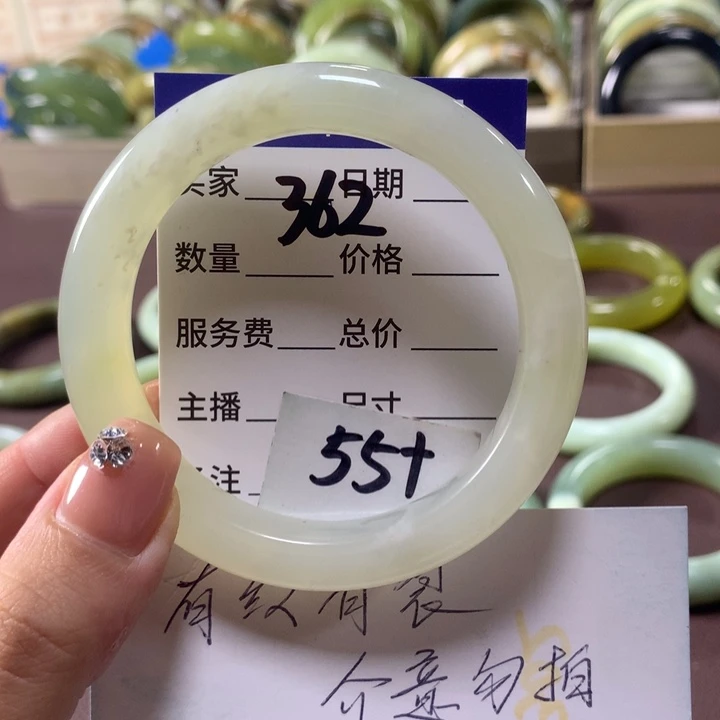 家 362 日期
数量 价格
服务费 总价
主播 尺寸
注 55+
有纹有裂
介意勿拍